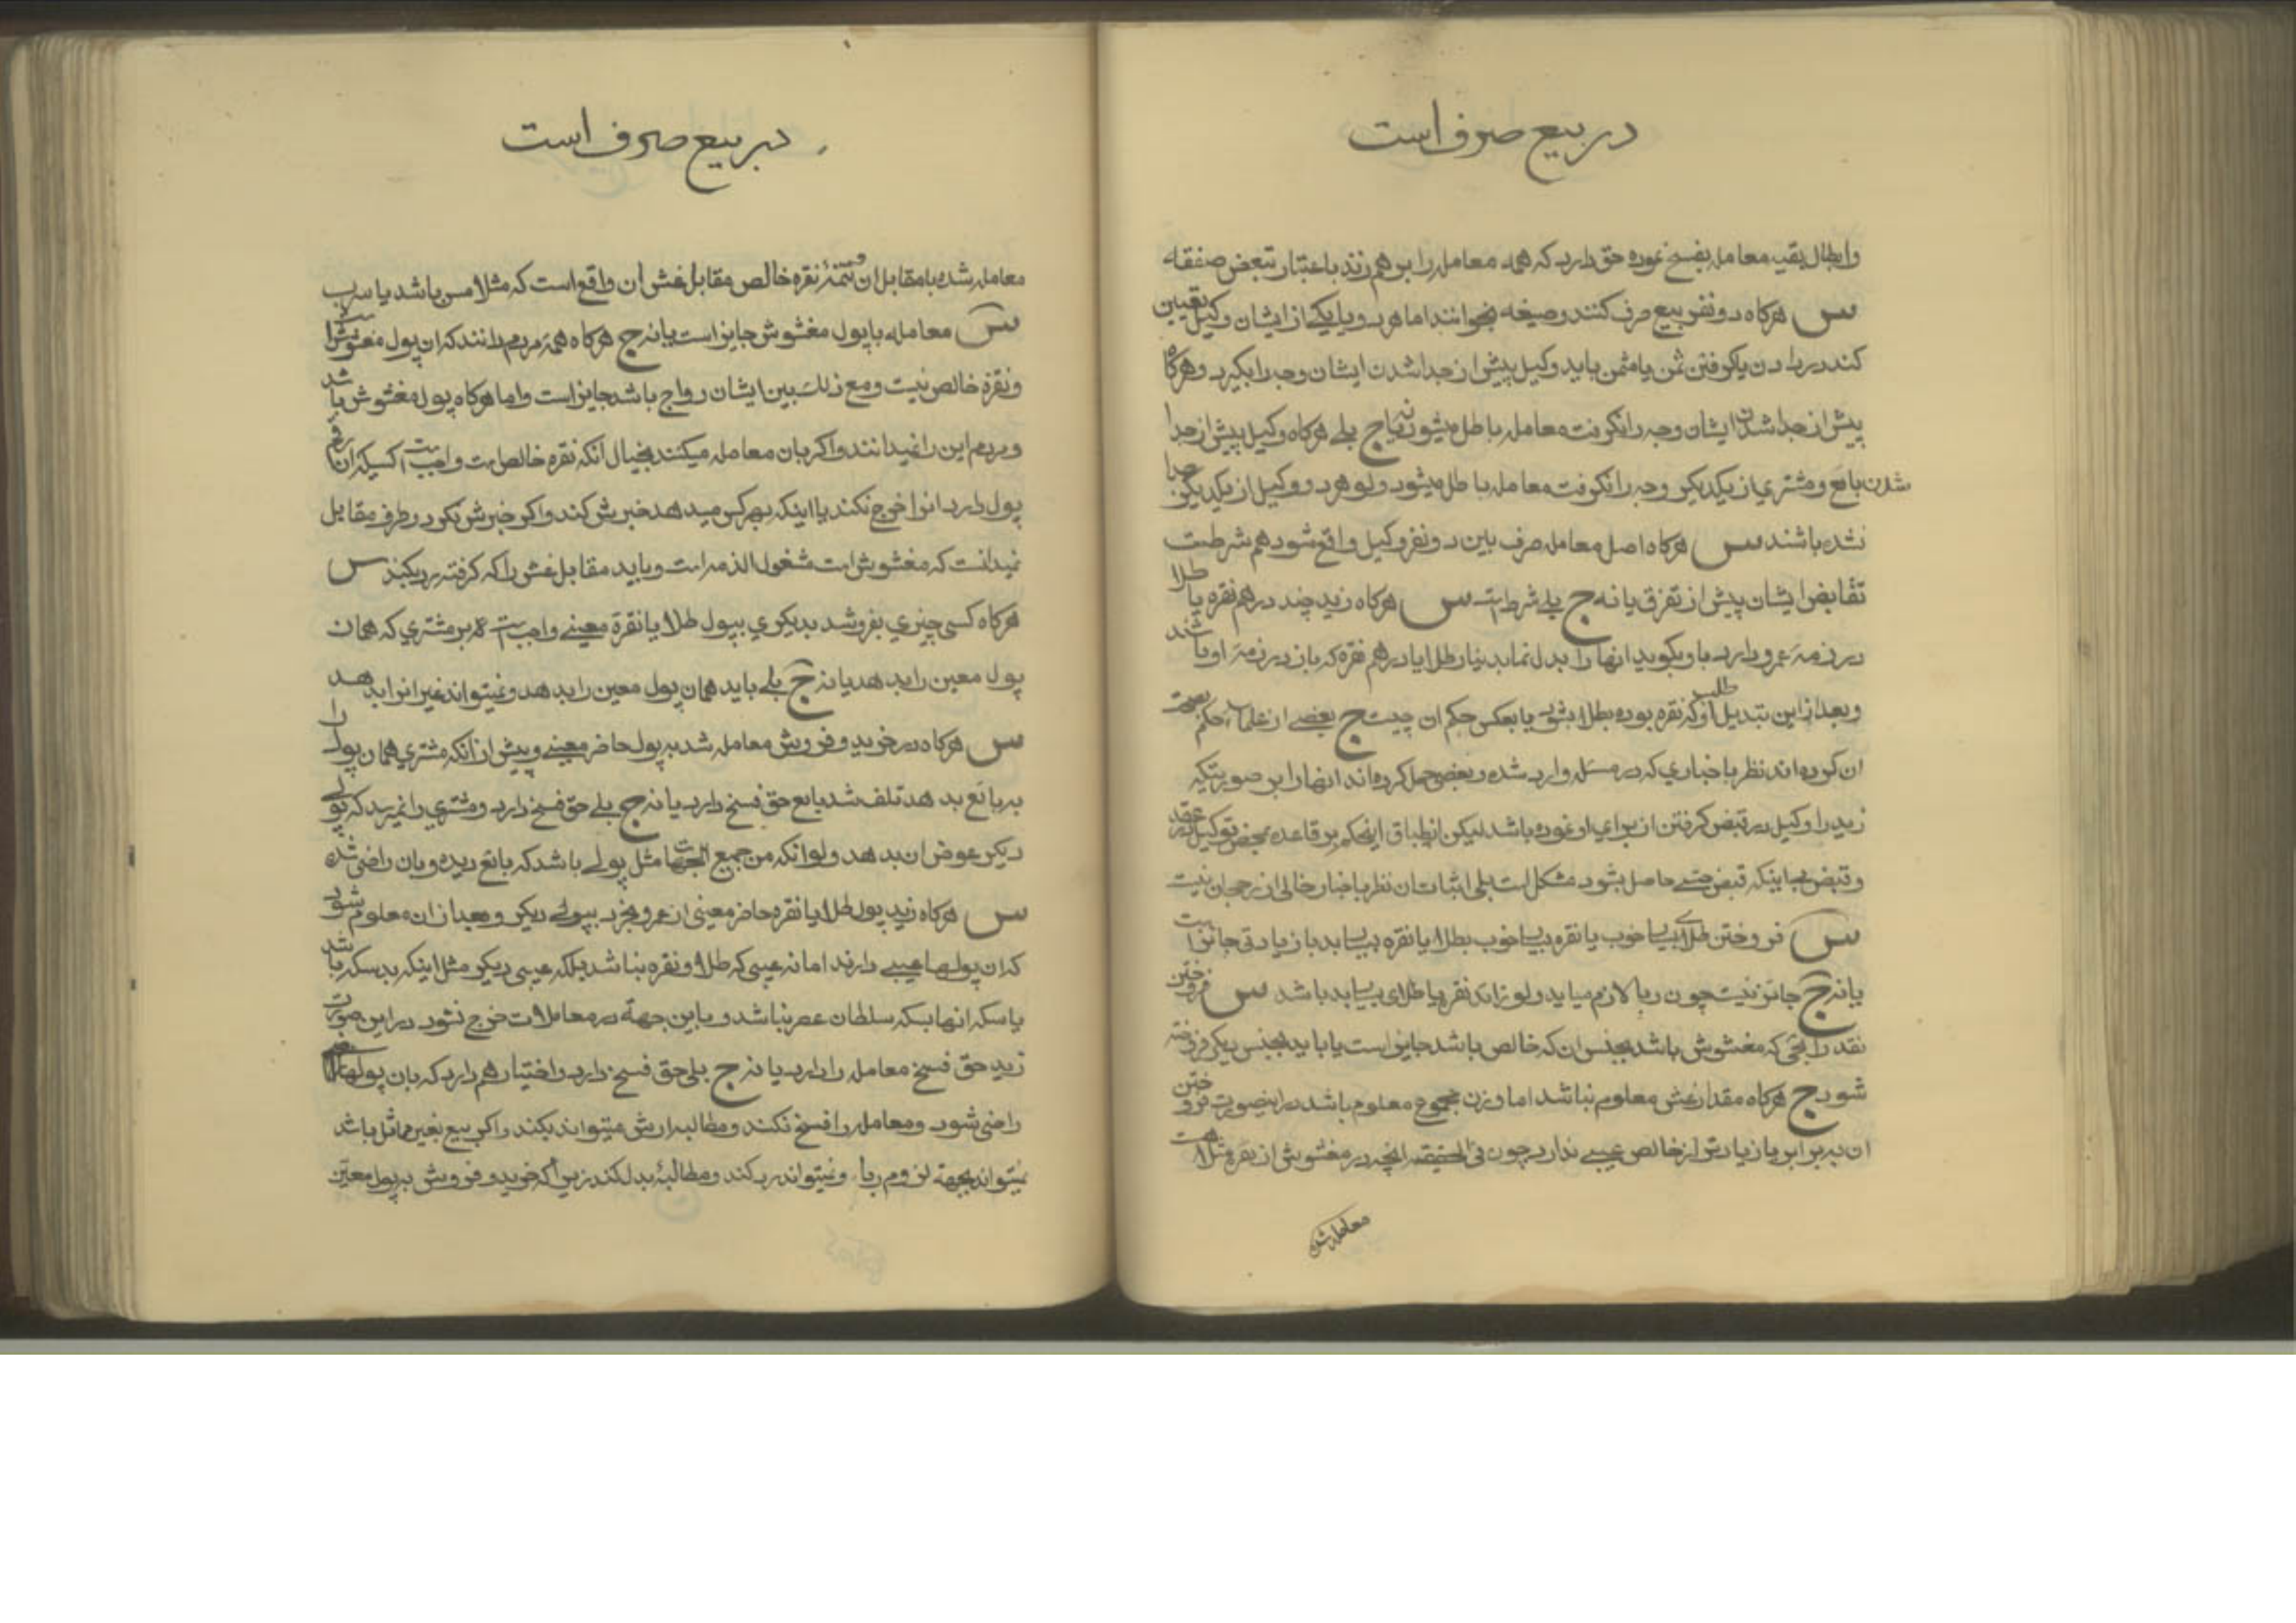 در بیع صرف است
وابطال بقیه معامله بفسخ نموده حق دارد که همه معامله را بر هم زند باعتبار تبعض صفقه
س هرکاه دو نفر بیع صرف کنند و صیغه بخوانند اما هر دو یا یکی از ایشان وکیل تعیین
کند در دادن یا کرفتن ثمن یا مثمن باید وکیل پیش از جدا شدن ایشان وجه را بکیرد و هرکاه
پیش از جدا شدن ایشان وجه را نکرفت معامله باطل میشود یا نه ج بلی هرکاه وکیل پیش از جدا
شدن بایع و مشتری از یکدیکر وجه را نکرفت معامله باطل میشود ولو هر دو وکیل از یکدیکر جدا
نشده باشند س هرکاه اصل معامله صرف بین دو نفر وکیل واقع شود هم شرطست
تقابض ایشان پیش از تفرق یا نه ج بلی شرط است س هرکاه زید چند درهم نقره یا طلا
در ذمه عمرو دارد باو بکوید انها را بدل نماید بدینار طلا یا درهم نقره که بان در ذمه او باشند
و بعد از این تبدیل طلب او که نقره بوده بطلا بشود یا بعکس حکم ان چیست ج بعضی از علماء حکم بصحت
ان کرده اند نظر باخباری که در مسئله وارد شده و بعضی حمل کرده اند انها را بر صورتیکه
زید را وکیل در قبض کرفتن از برای او نموده باشد لیکن انطباق اینحکم بر قاعده بمحض توکیل در عقد
و قبض بی اینکه قبض حسی حاصل بشود مشکل است بلی اثبات ان نظر باخبار خالی از رجحان نیست
س فروختن طلای بیسیا خوب یا نقره بیسیا خوب بطلا یا نقره بیسیا بد با زیادتی جایز است
یا نه ج جایز نیست چون ربا لازم میاید ولو زائد نقره یا طلای بیسیا بد باشد س فروختن
نقد رایجی که مغشوش باشد بجنس ان که خالص باشد جایز است یا باید بجنس دیکر فروخته
شود ج هرکاه مقدار غش معلوم نباشد اما وزن مجموع معلوم باشد در اینصورت فروختن
ان ببرابر یا زیادتر از خالص عیبی ندارد چون فی الحقیقه انچه در مغشوش از نقره مثلا هست
معامله شده
در بیع صرف است
معامله شده بامقابل ان و تتمهٔ نقره خالص مقابل غش ان واقع است که مثلا مس باشد یا سرب
س معامله با پول مغشوش جایز است یا نه ج هرکاه همه مردم دانند که ان پول مغشوش است
و نقره خالص نیست و مع ذلک بین ایشان رواج باشد جایز است و اما هرکاه پول مغشوش باشد
و مردم این را نمیدانند و اکر بان معامله میکنند بخیال انکه نقره خالص است واجب است کسیکه ان
پول دارد انرا خرج نکند یا اینکه بهرکس میدهد خبرش کند و اکر خبرش نکرد و طرف مقابل
نمیدانست که مغشوش است مشغول الذمه است و باید مقابل غش را که کرفته رد بکند س
هرکاه کسی چیزی بفروشد بدیکری بپول طلا یا نقره معینی واجب است بر مشتری که همان
پول معین را بدهد یا نه ج بلی باید همان پول معین را بدهد و نمیتواند غیر انرا بدهد
س هرکاه در خرید و فروش معامله شد بپول حاضر معینی و پیش از انکه مشتری همان پول را
به بایع بدهد تلف شد بایع حق فسخ دارد یا نه ج بلی حق فسخ دارد و مشتری را نمیرسد که پولی
دیکر عوض ان بدهد ولو انکه من جمیع الجهات مثل پولی باشد که بایع دیده و بان راضی شده
س هرکاه زید پول طلا یا نقره حاضر معینی از عمرو بخرد بپولی دیکر و بعد از ان معلوم شود
که ان پولها عیبی دارند اما نه عیبی که طلا و نقره نباشد بلکه عیبی دیکر مثل اینکه بد سکه باشد
یا سکه انها بسکه سلطان عصر نباشد و باین جهة در معاملات خرج نشود در این صورت
زید حق فسخ معامله را دارد یا نه ج بلی حق فسخ دارد و اختیار هم دارد که بان پولها
راضی شود و معامله را فسخ نکند و مطالبه ارش میتواند بکند اکر بیع بغیر مماثل باشد
نمیتواند بجهة لزوم ربا و نمیتواند رد کند و مطالبهٔ بدل کند زیرا که خرید و فروش به پول معین